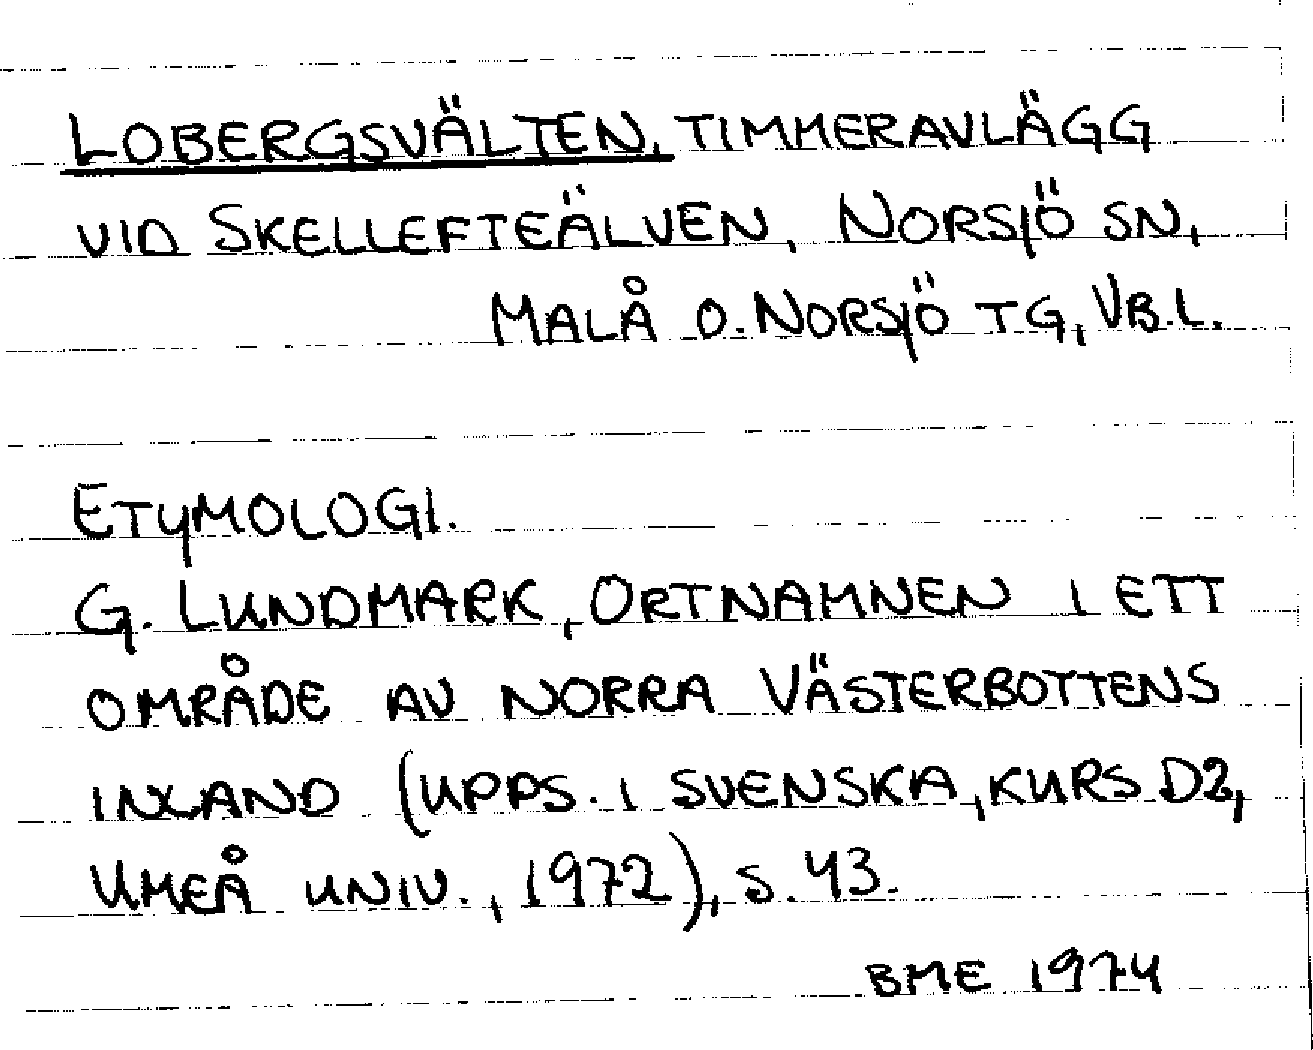 LOBERGSVÄLTEN, TIMMERAVLÄGG
VID SKELLEFTEÄLVEN, NORSJÖ SN,
MALÅ O. NORSJÖ TG, VB.L.
ETYMOLOGI.
G. LUNDMARK, ORTNAMNEN I ETT
OMRÅDE AV NORRA VÄSTERBOTTENS
INLAND (UPPS. I SVENSKA, KURS D2,
UMEÅ UNIV., 1972), S. 43.
BME 1974